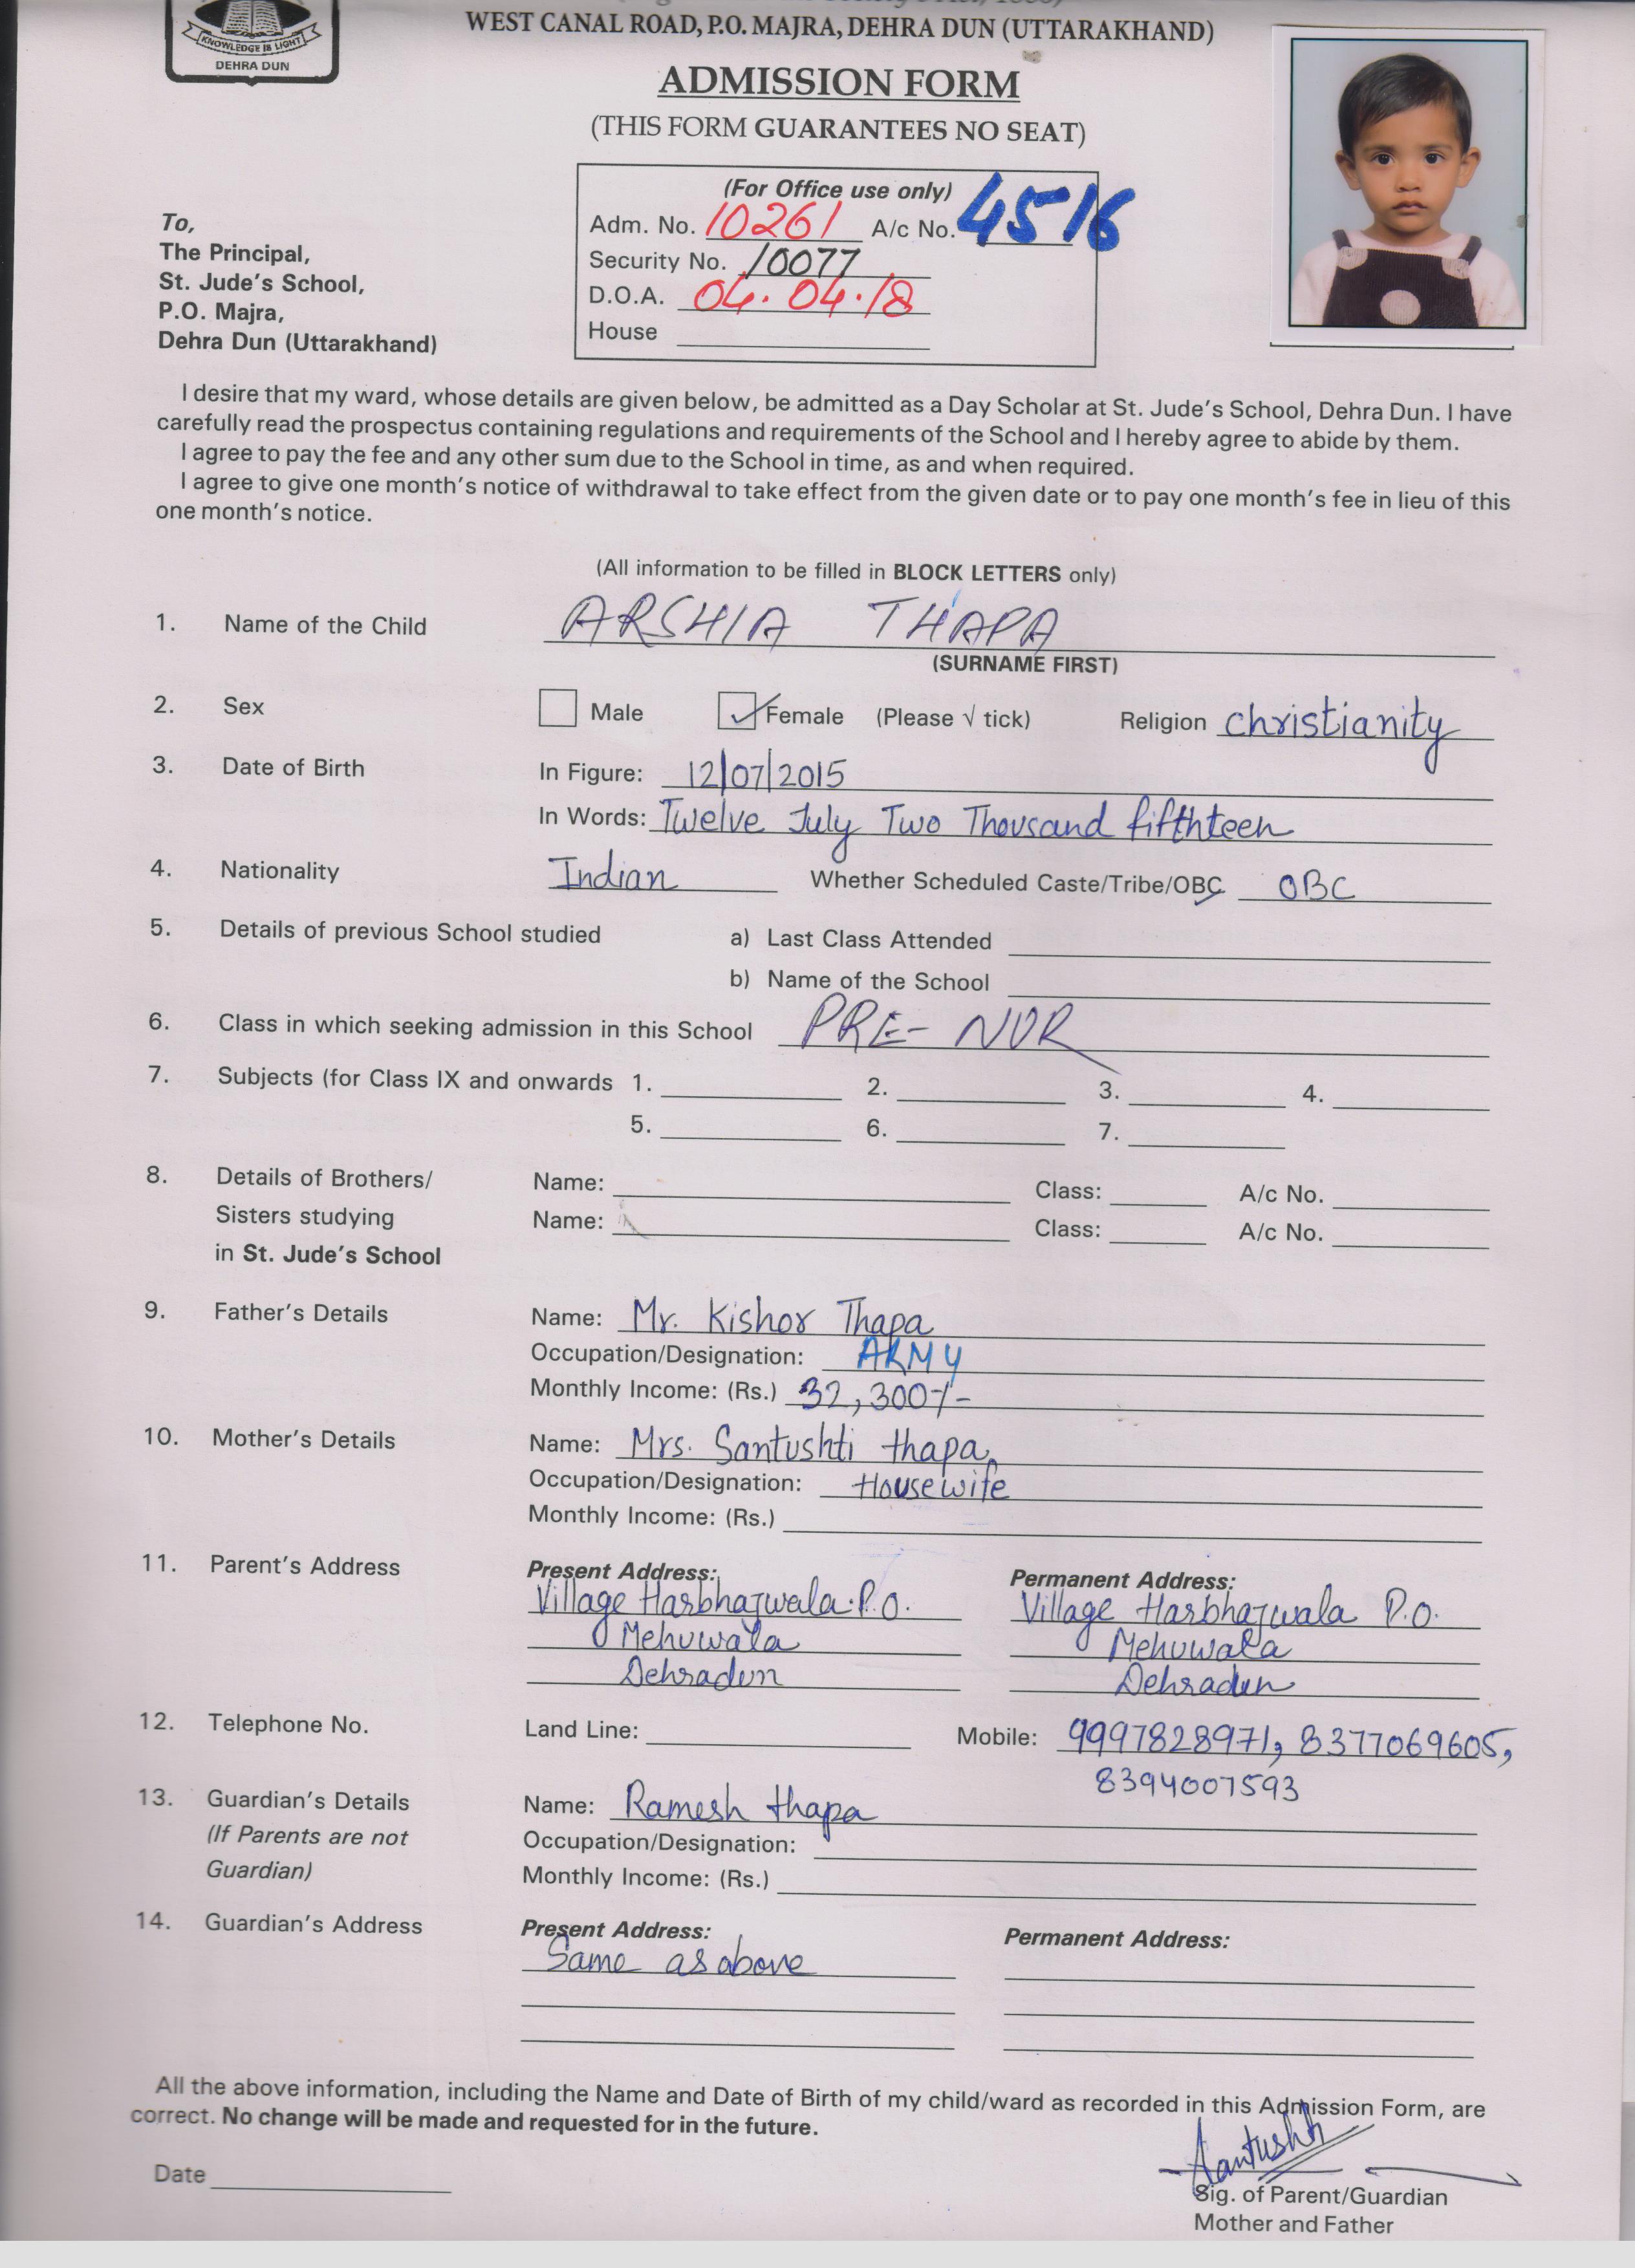 KNOWLEDGE IS LIGHT
DEHRA DUN
WEST CANAL ROAD, P.O. MAJRA, DEHRA DUN (UTTARAKHAND)
ADMISSION FORM
(THIS FORM GUARANTEES NO SEAT)
(For Office use only)
Adm. No. 10261 A/c No. 4516
Security No. 10077
D.O.A. 04.04.18
House
To,
The Principal,
St. Jude's School,
P.O. Majra,
Dehra Dun (Uttarakhand)
I desire that my ward, whose details are given below, be admitted as a Day Scholar at St. Jude's School, Dehra Dun. I have
carefully read the prospectus containing regulations and requirements of the School and I hereby agree to abide by them.
I agree to pay the fee and any other sum due to the School in time, as and when required.
I agree to give one month's notice of withdrawal to take effect from the given date or to pay one month's fee in lieu of this
one month's notice.
(All information to be filled in BLOCK LETTERS only)
1. Name of the Child ARSHIA THAPA
(SURNAME FIRST)
2. Sex Male Female (Please √ tick) Religion christianity
3. Date of Birth In Figure: 12/07/2015
In Words: Twelve July Two Thousand fifthteen
4. Nationality Indian Whether Scheduled Caste/Tribe/OBC OBC
5. Details of previous School studied a) Last Class Attended
b) Name of the School
6. Class in which seeking admission in this School PRE-NUR
7. Subjects (for Class IX and onwards 1. 2. 3. 4.
5. 6. 7.
8. Details of Brothers/ Name: Class: A/c No.
Sisters studying Name: Class: A/c No.
in St. Jude's School
9. Father's Details Name: Mr. Kishor Thapa
Occupation/Designation: ARMY
Monthly Income: (Rs.) 32,300/-
10. Mother's Details Name: Mrs. Santushti thapa.
Occupation/Designation: Housewife
Monthly Income: (Rs.)
11. Parent's Address Present Address: Permanent Address:
Village Harbhajwala P.O. Village Harbhajwala P.O.
Mehuwala Mehuwala
Dehradun Dehradun
12. Telephone No. Land Line: Mobile: 9997828971, 8377069605,
8394007593
13. Guardian's Details Name: Ramesh thapa
(If Parents are not Occupation/Designation:
Guardian) Monthly Income: (Rs.)
14. Guardian's Address Present Address: Permanent Address:
Same as above
All the above information, including the Name and Date of Birth of my child/ward as recorded in this Admission Form, are
correct. No change will be made and requested for in the future.
Santushti
Date
Sig. of Parent/Guardian
Mother and Father